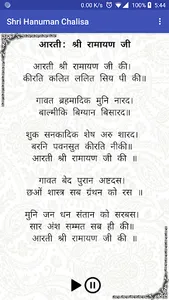 0.00 K/s 5:44
Shri Hanuman Chalisa
आरती: श्री रामायण जी
आरती श्री रामायण जी की।
कीरति कलित ललित सिय पी की॥
गावत ब्रहमादिक मुनि नारद।
बाल्मीकि बिग्यान बिसारद॥
शुक सनकादिक शेष अरु शारद।
बरनि पवनसुत कीरति नीकी॥
आरती श्री रामायण जी की ॥
गावत बेद पुरान अष्टदस।
छओं शास्त्र सब ग्रंथन को रस ॥
मुनि जन धन संतान को सरबस।
सार अंश सम्मत सब ही की॥
आरती श्री रामायण जी की ॥